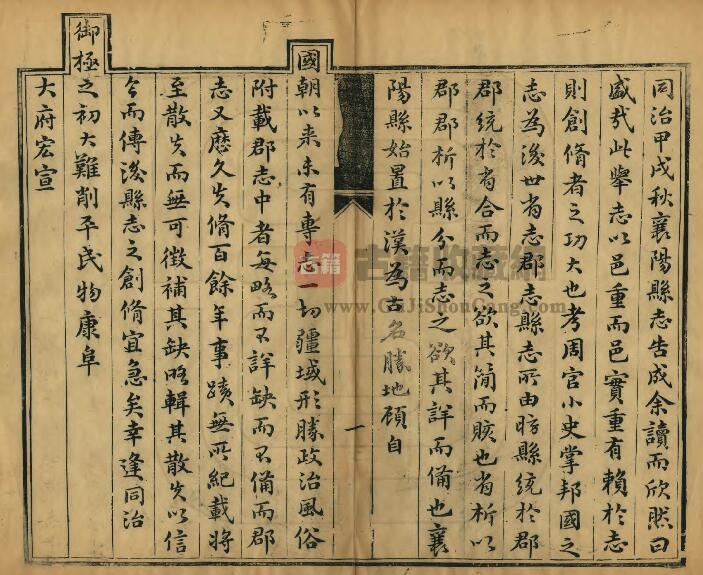 同治甲戌秋襄陽縣志告成余讀而欣然曰
盛哉此舉志以邑重而邑實重有賴於志
則創脩者之功大也考周官小史掌邦國之
志為後世省志郡志縣志所由昉縣統於郡
郡統於省合而志之欲其簡而賅也省析以
郡郡析以縣分而志之欲其詳而備也襄
陽縣始置於漢為古名勝地顧自
一
國朝以来未有專志一切疆域形勝政治風俗
附載郡志中者每略而不詳缺而不備而郡
志又歷久失脩百餘年事蹟無所紀載將
至散失而無可徵補其缺略輯其散失以信
今而傳後縣志之創脩宜急矣幸逢同治
御極之初大難削平民物康阜
大府宏宣
志籍
古籍收藏網
www.GuJiShouCang.com